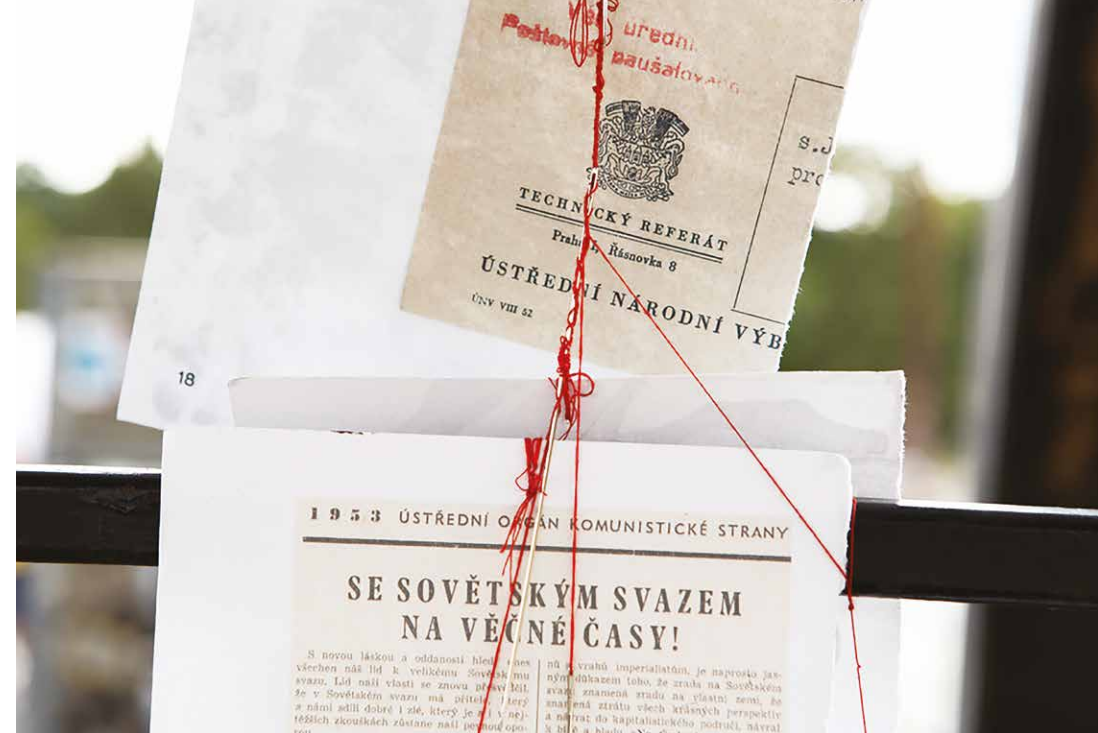 úřední
Poštovné paušalováno
s.J
pro
TECHNICKÝ REFERÁT
Praha I, Řásnovka 8
ÚSTŘEDNÍ NÁRODNÍ VÝB
ÚNV VIII 52
18
1953 ÚSTŘEDNÍ ORGÁN KOMUNISTICKÉ STRANY
SE SOVĚTSKÝM SVAZEM
NA VĚČNÉ ČASY!
S novou láskou a oddaností hledí dnes
všechen náš lid k velikému Sovětskému
svazu. Lid naší vlasti se znovu přesvědčil,
že v Sovětském svazu má přítele, který
s námi sdílí dobré i zlé, který je a i v nej-
těžších zkouškách zůstane naší pevnou opo-
rou
nů a vrahů imperialistům, je naprosto jas-
ným důkazem toho, že zrada na Sovětském
svazu znamená zradu na vlastní zemi, že
znamená ztrátu všech krásných perspektiv
a návrat do kapitalistického područí, návrat
k bídě a hladu